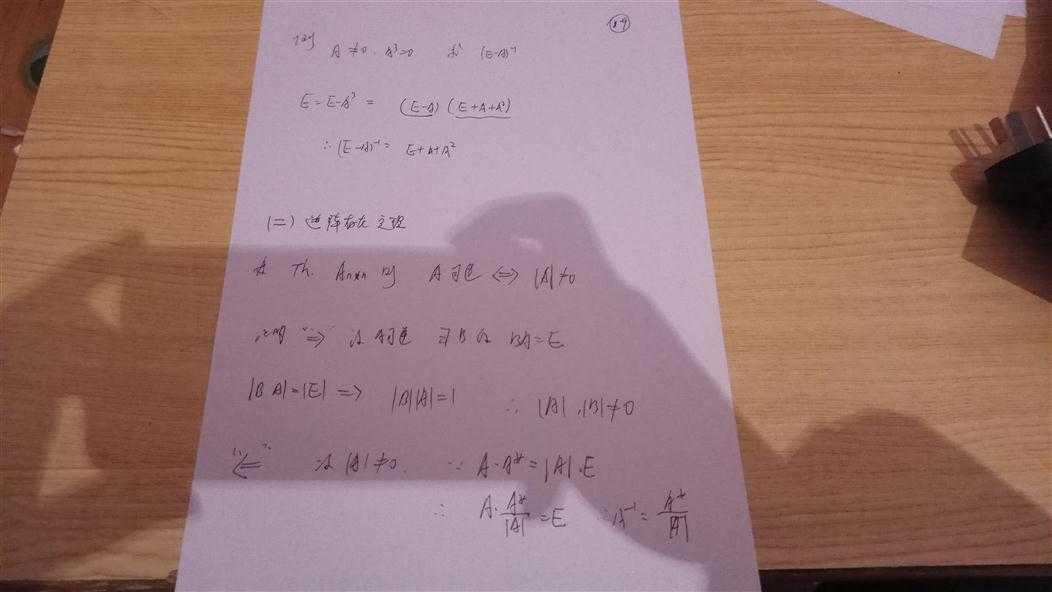 例 A≠0, A³=0 求 (E-A)⁻¹
E=E-A³ = (E-A)(E+A+A²)
∴ (E-A)⁻¹ = E+A+A²
(二) 逆阵存在定理
Th. Aₙₓₙ 则 A可逆 ⇔ |A|≠0
证明 "⇒" 设 A可逆 ∃B 使 BA=E
|BA|=|E| ⇒ |B||A|=1 ∴ |A|,|B|≠0
"⇐" 设 |A|≠0. ∵ A·A*=|A|·E
∴ A·A*/|A|=E ∴A⁻¹=A*/|A|